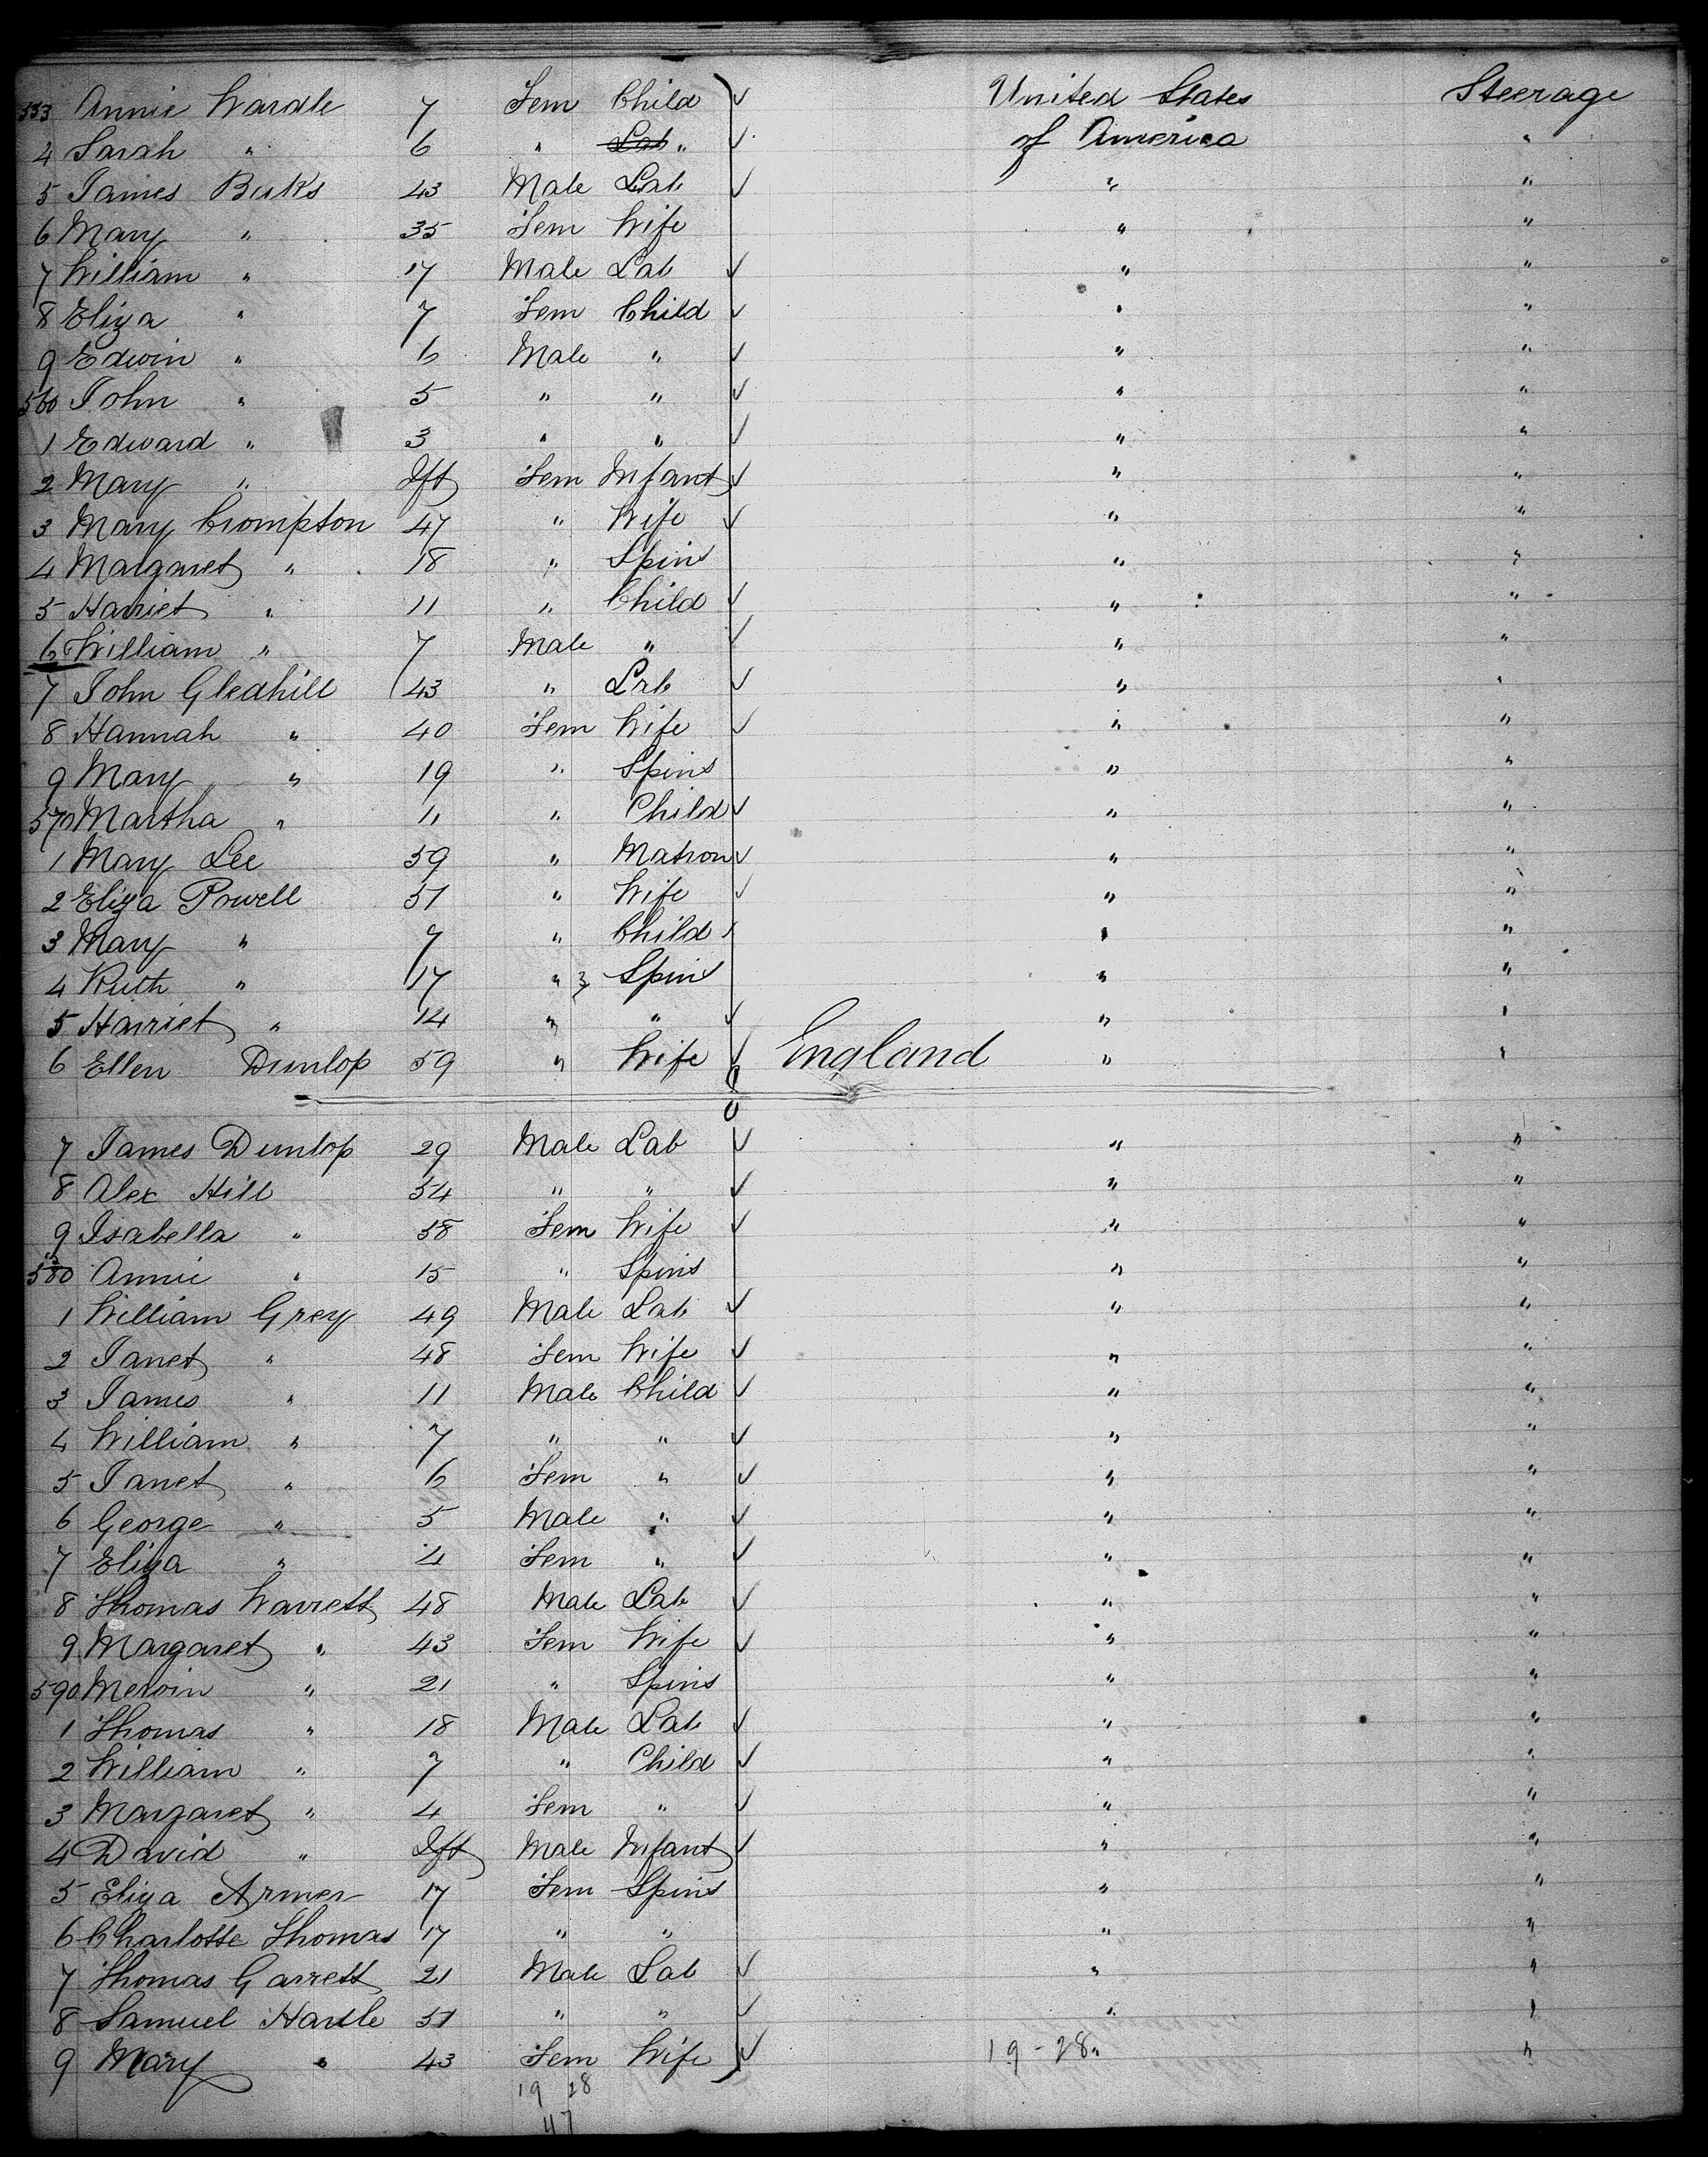 553 Annie Wardle 7 Fem Child United States Steerage
4 Sarah " 6 " Lab " of America "
5 James Birks 43 Male Lab " "
6 Mary " 35 Fem Wife " "
7 William " 17 Male Lab " "
8 Eliza " 7 Fem Child " "
9 Edwin " 6 Male " " "
560 John " 5 " " " "
1 Edward " 3 " " " "
2 Mary " Ift Fem Infant " "
3 Mary Crompton 47 " Wife " "
4 Margaret " 18 " Spins " "
5 Harriet " 11 " Child " "
6 William " 7 Male " " "
7 John Gledhill 43 " Lab " "
8 Hannah " 40 Fem Wife " "
9 Mary " 19 " Spins " "
570 Martha " 11 " Child " "
1 Mary Lee 59 " Matron " "
2 Eliza Powell 51 " Wife " "
3 Mary " 9 " Child " "
4 Ruth " 17 " Spins " "
5 Harriet " 14 " " " "
6 Ellen Dunlop 59 " Wife England " "
7 James Dunlop 29 Male Lab " "
8 Alex Hill 54 " " " "
9 Isabella " 58 Fem Wife " "
580 Annie " 15 " Spins " "
1 William Grey 49 Male Lab " "
2 Janet " 48 Fem Wife " "
3 James " 11 Male Child " "
4 William " 7 " " " "
5 Janet " 6 Fem " " "
6 George " 5 Male " " "
7 Eliza " 4 Fem " " "
8 Thomas Warrett 48 Male Lab " "
9 Margaret " 43 Fem Wife " "
590 " 21 " Spins " "
1 Thomas " 18 Male Lab " "
2 William " 7 " Child " "
3 Margaret " 4 Fem " " "
4 David " Ift Male Infant " "
5 Eliza Armer 17 Fem Spins " "
6 Charlotte Thomas 17 " " " "
7 Thomas Garrett 21 Male Lab " "
8 Samuel Hartle 51 " " " "
9 Mary " 43 Fem Wife 19-28 " "
19 28
47